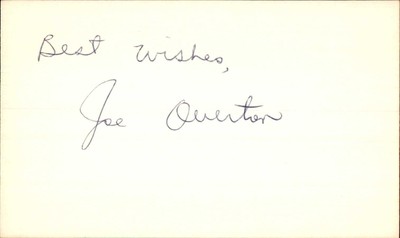 Best wishes,
Joe Overton